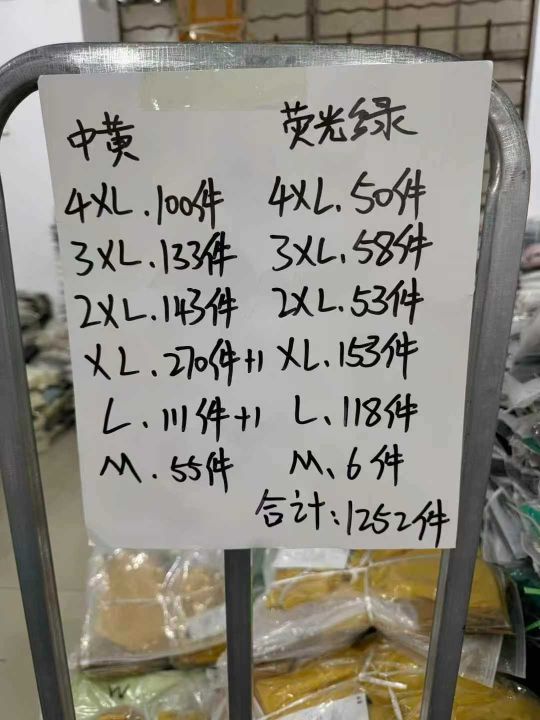 中黄 荧光绿
4XL.100件 4XL.50件
3XL.133件 3XL、58件
2XL.143件 2XL、53件
XL.270件+1 XL、153件
L.111件+1 L、118件
M.55件 M、6件
合计:1252件